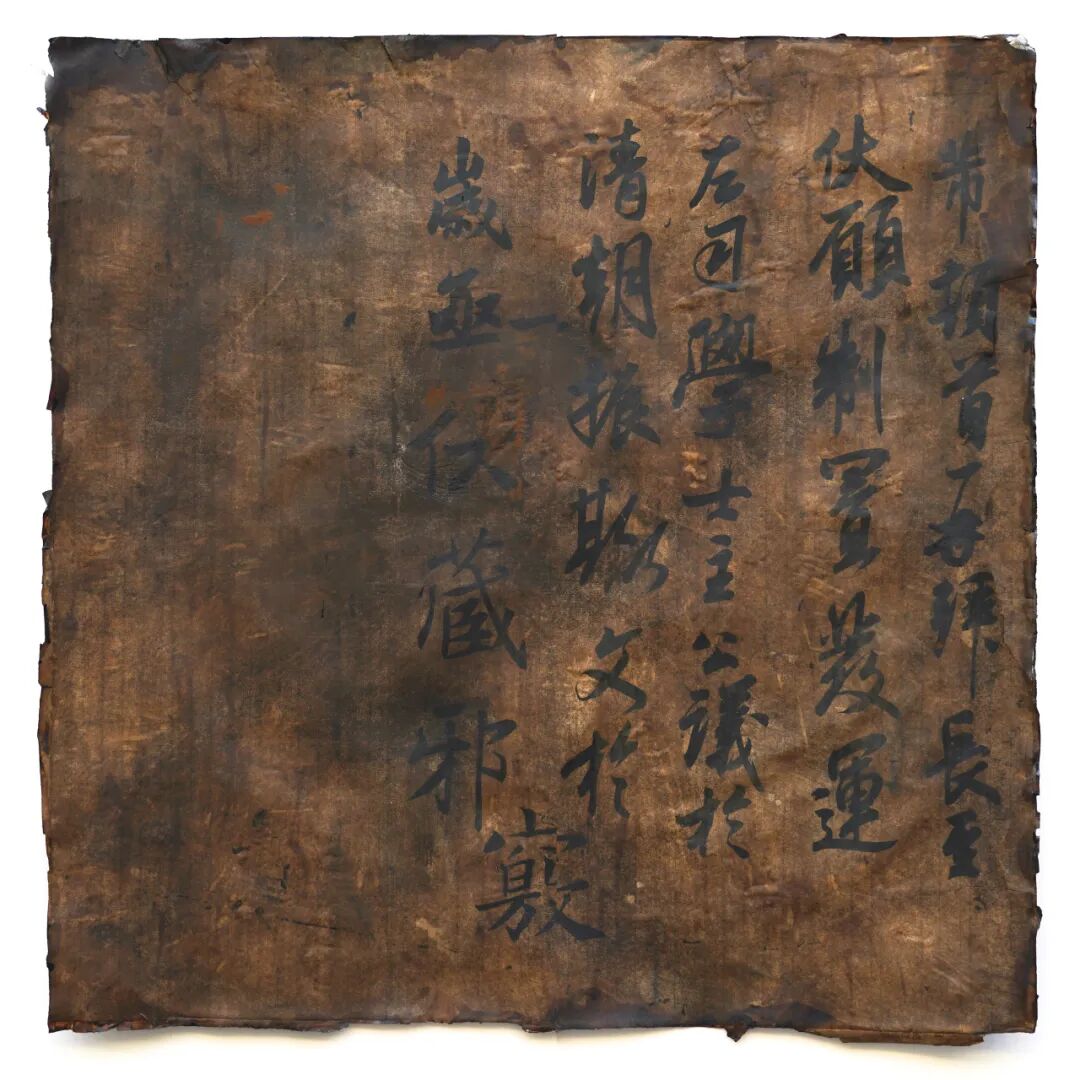 芾頓首再拜長至
伏願制置發運
左司學士主公議於
清朝振斯文於
歲亟伏藏邪竅